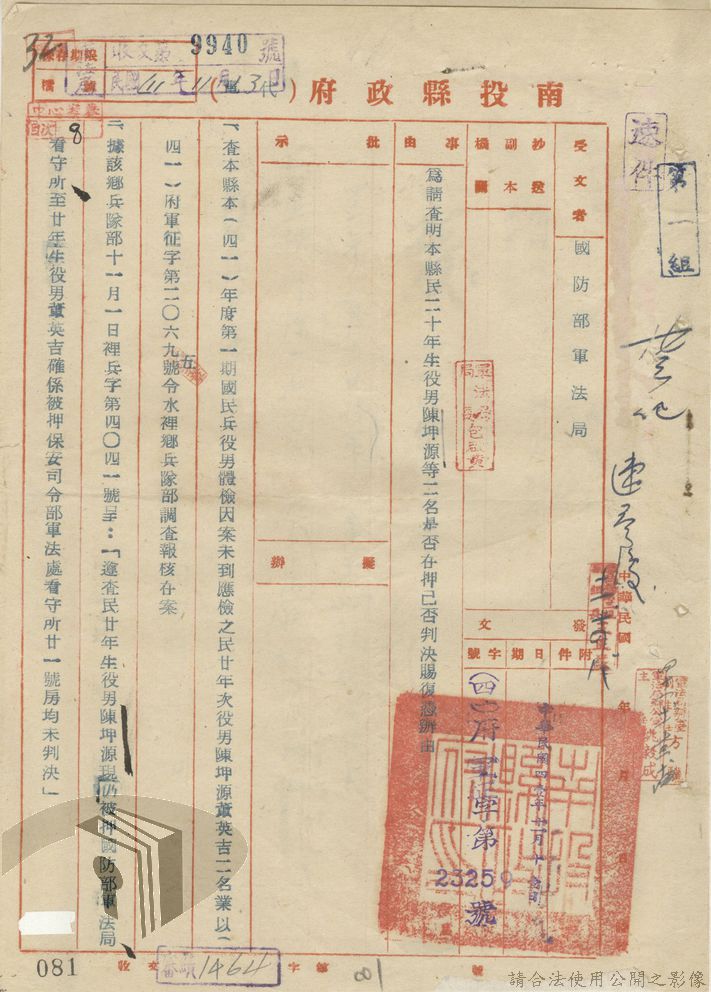 南投縣政府（代電）
收文第 9940 號
32
速件
第一組
受文者
國防部軍法局
抄送副本機關
事由
為請查明本縣民二十年生役男陳坤源等二名是否在押已否判決賜復憑辦由
批示
擬辦
發文
附件
日期
字號
中華民國
（四一）府軍字第
23259
號
一、查本縣本（四一）年度第一期國民兵役男體檢因案未到應檢之民廿年次役男陳坤源董英吉二名業以（
四一）府軍征字第二〇六九五號令水裡鄉兵隊部調查報核在案
二、據該鄉兵隊部十一月一日裡兵字第四〇四一號呈：「遵查民廿年生役男陳坤源現仍被押國防部軍法局
看守所至廿年生役男董英吉確係被押保安司令部軍法處看守所廿一號房均未判決」
目次 8
081
1464
請合法使用公開之影像